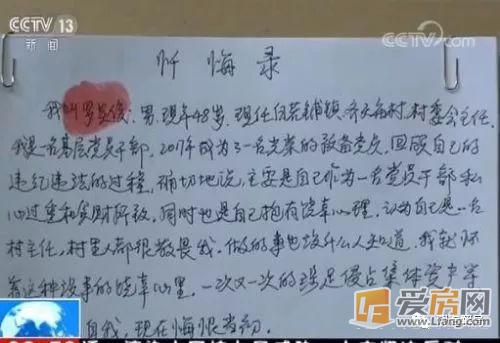 CCTV 13
新闻
CCTV.com
忏 悔 录
我叫罗昊俊,男,现年48岁,现任风茗铺镇,齐天庙村,村委会主任,
我是一名基层党员干部,2017年成为了一名光荣的预备党员,回顾自己的
违纪违法的过程,确切地说,主要是自己作为一名党员干部私
心过重和贪财所致,同时也是自己抱有侥幸心理,认为自己是一名
村主任,村里人都很敬畏我,做的事也没什么人知道,我就怀
着这种侥幸的心里,一次又一次的
侵占集体资产
自我,现在悔恨当初
爱房网
Lfang.com